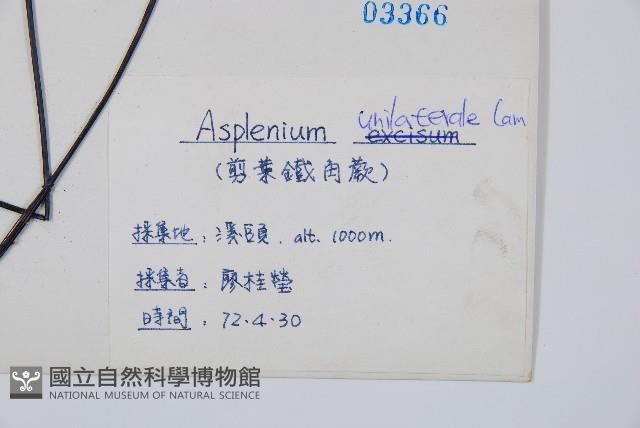 03366
Asplenium excisum unilaterale Lam
(剪葉鐵角蕨)
採集地：溪頭．alt. 1000m.
採集者：廖桂瑩
時間：72.4.30
國立自然科學博物館
NATIONAL MUSEUM OF NATURAL SCIENCE